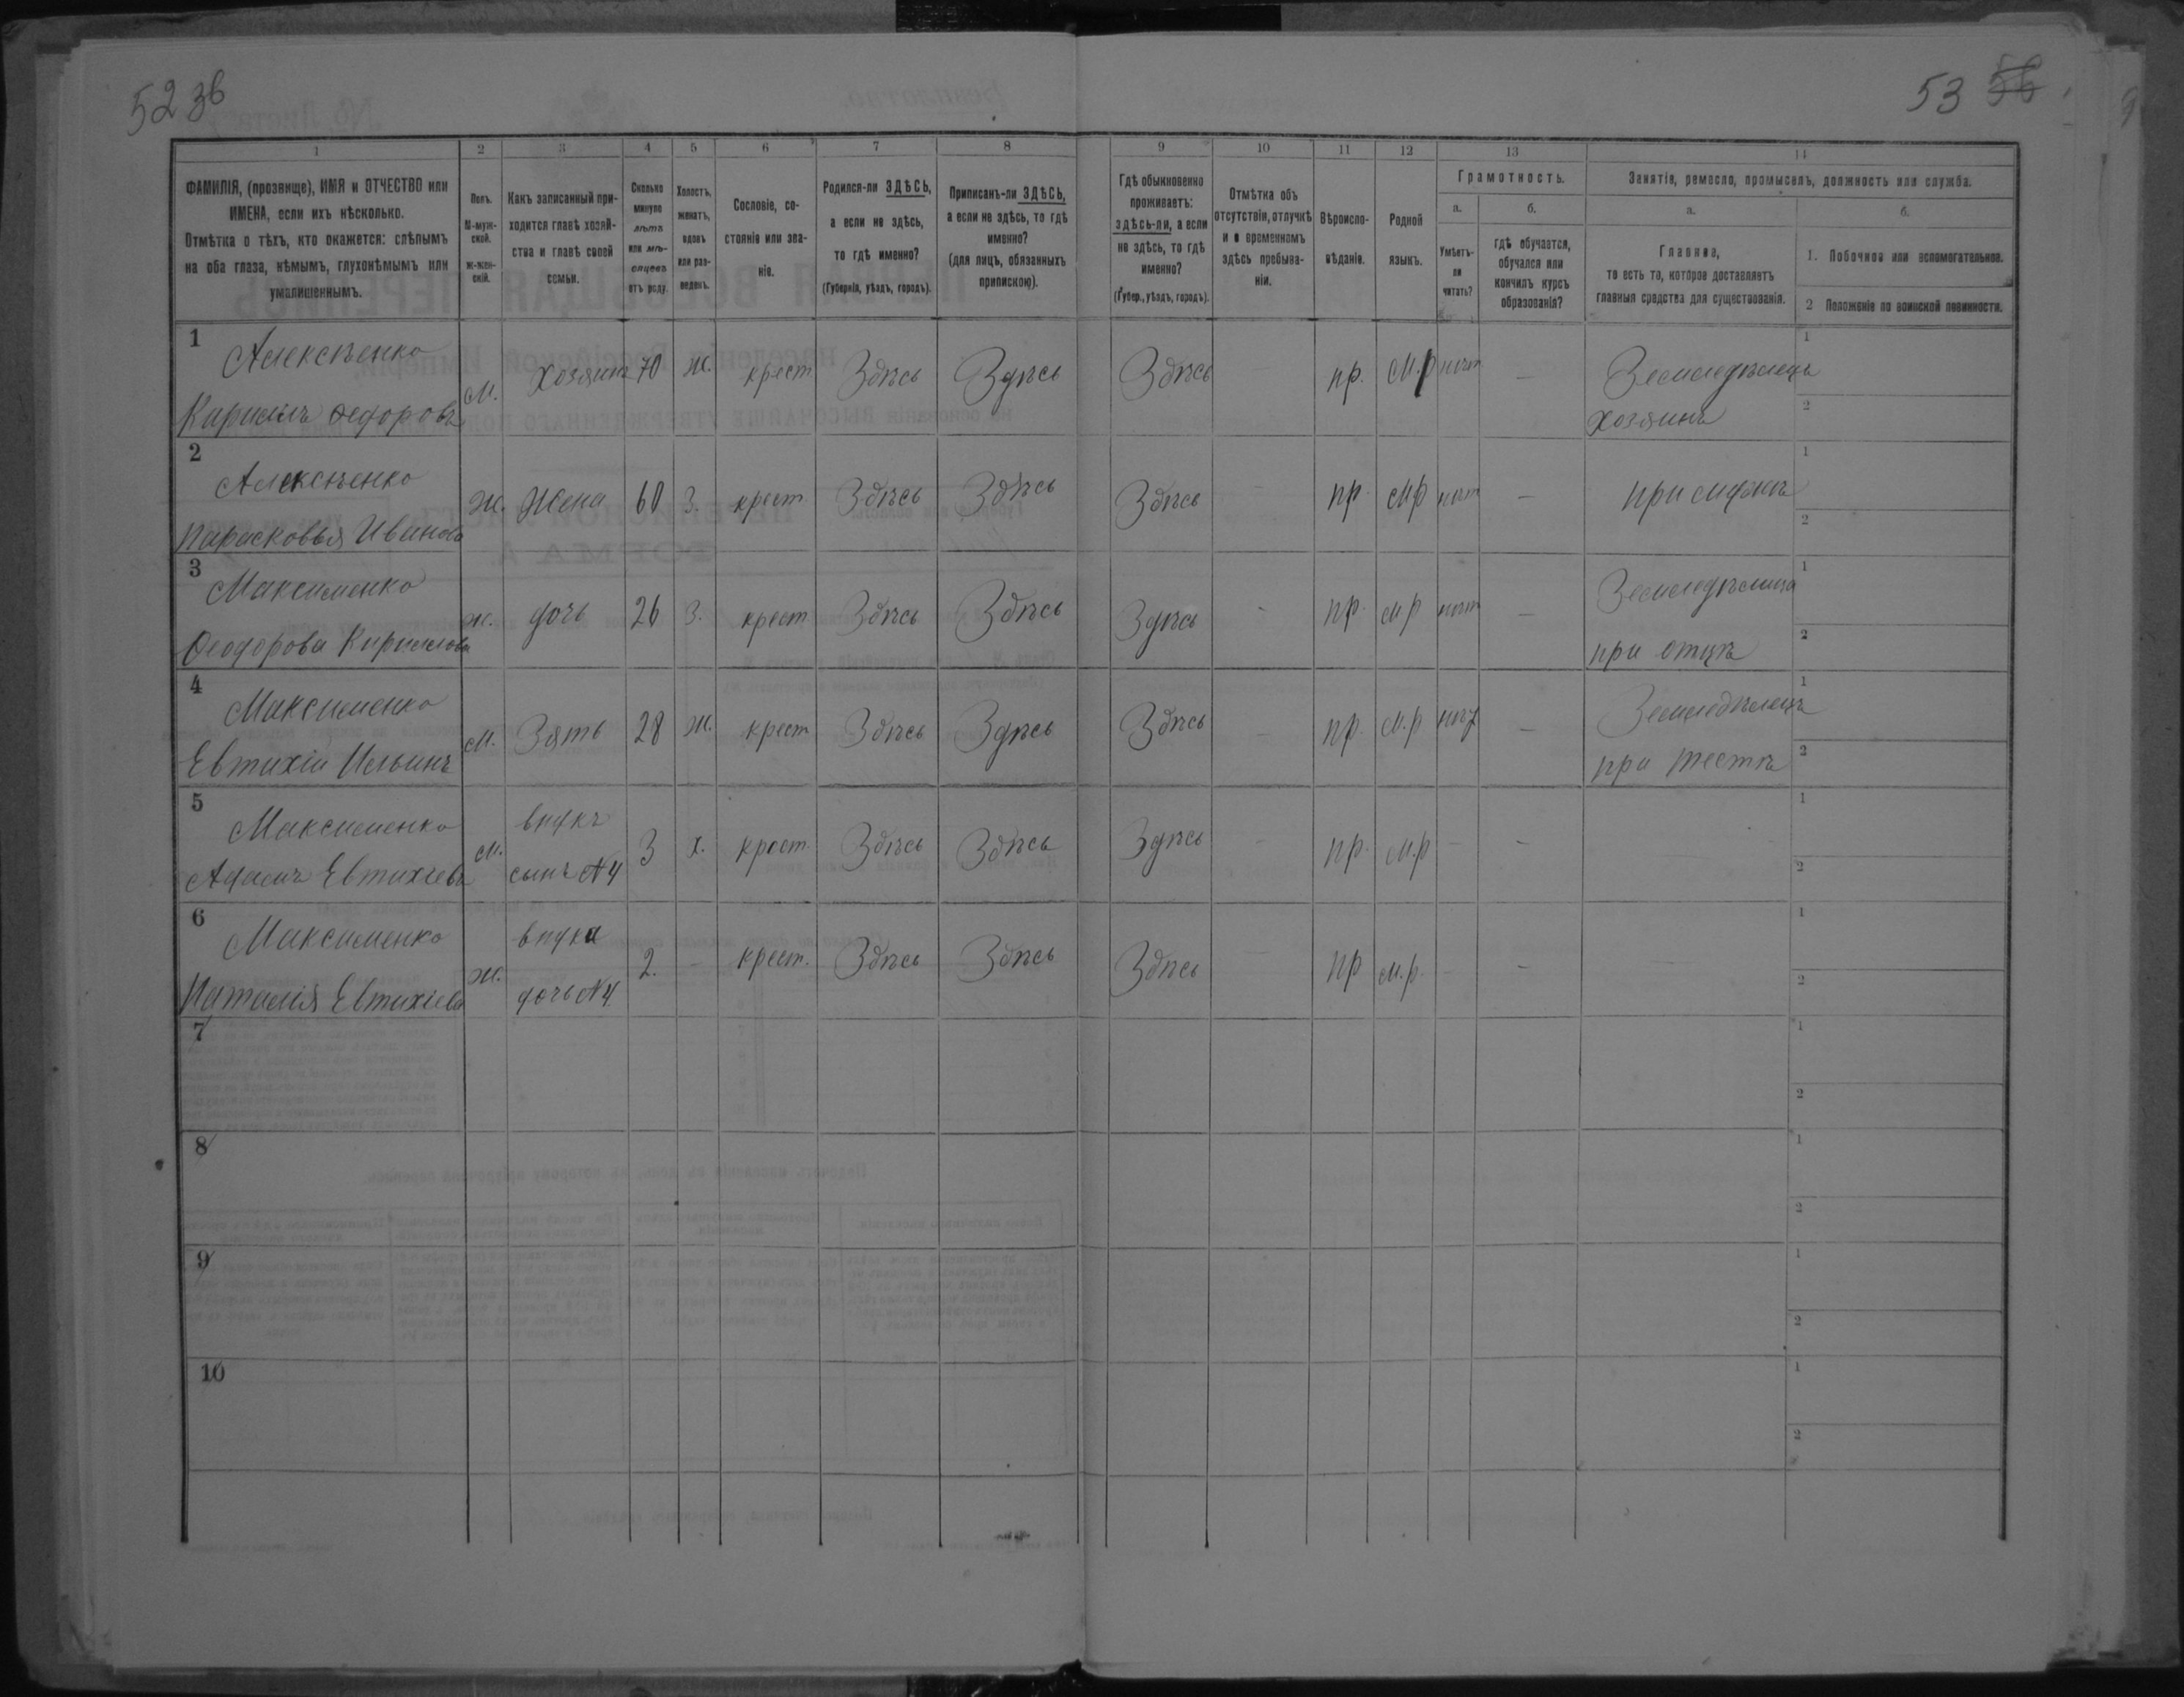 52 зв
53 56
1 2 3 4 5 6 7 8 9 10 11 12 13 14
ФАМИЛІЯ, (прозвище), ИМЯ и ОТЧЕСТВО или
ИМЕНА, если ихъ нѣсколько.
Отмѣтка о тѣхъ, кто окажется: слѣпымъ
на оба глаза, нѣмымъ, глухонѣмымъ или
умалишеннымъ.
Полъ.
М-муж-
ской.
Ж-жен-
скій.
Какъ записанный при-
ходится главѣ хозяй-
ства и главѣ своей
семьи.
Сколько
минуло
лѣтъ
или мѣ-
сяцевъ
отъ роду.
Холостъ,
женатъ,
вдовъ
или раз-
веденъ.
Сословіе, со-
стояніе или зва-
ніе.
Родился-ли ЗДѢСЬ,
а если не здѣсь,
то гдѣ именно?
(Губернія, уѣздъ, городъ).
Приписанъ-ли ЗДѢСЬ,
а если не здѣсь, то гдѣ
именно?
(для лицъ, обязанныхъ
припискою).
Гдѣ обыкновенно
проживаетъ:
здѣсь-ли, а если
не здѣсь, то гдѣ
именно?
(Губер., уѣздъ, городъ).
Отмѣтка объ
отсутствіи, отлучкѣ
и о временномъ
здѣсь пребыва-
ніи.
Вѣроиспо-
вѣданіе.
Родной
языкъ.
Грамотность.
а.
Умѣетъ-
ли
читать?
б.
гдѣ обучается,
обучался или
кончилъ курсъ
образованія?
Занятія, ремесло, промыселъ, должность или служба.
а.
Главное,
то есть то, которое доставляетъ
главныя средства для существованія.
б.
1. Побочное или вспомогательное.
2 Положеніе по воинской повинности.
1 Алексѣенко М. Хозяинъ 70 ж. крест Здѣсь Здѣсь Здѣсь — пр. М.р нѣт — Земледѣлецъ 1
Кирилъ Ѳедоровъ хозяинъ 2
2 Алексѣенко Ж. Жена 60 З. крест. Здѣсь Здѣсь Здѣсь — пр. М.р нѣт — при мужѣ 1
Парасковья Иванова 2
3 Максименко ж. дочь 26 З. крест Здѣсь Здѣсь Здѣсь - пр. м.р нѣт — Земледѣлица 1
Ѳеодорова Кирилова при отцѣ 2
4 Максименко М. Зять 28 Ж. крест Здѣсь Здѣсь Здѣсь — пр. м.р — Земледѣлецъ 1
Евтихій Ильинъ при тестѣ 2
5 Максименко М. внукъ 3 х. крест. Здѣсь Здѣсь Здѣсь — пр. м.р - - 1
Адамъ Евтихіевъ сынъ N4 2
6 Максименко Ж. внука 2. - крест. Здѣсь Здѣсь Здѣсь — пр м.р. - - 1
Наталія Евтихіева дочь N4 2
7 1
2
8 1
2
9 1
2
10 1
2